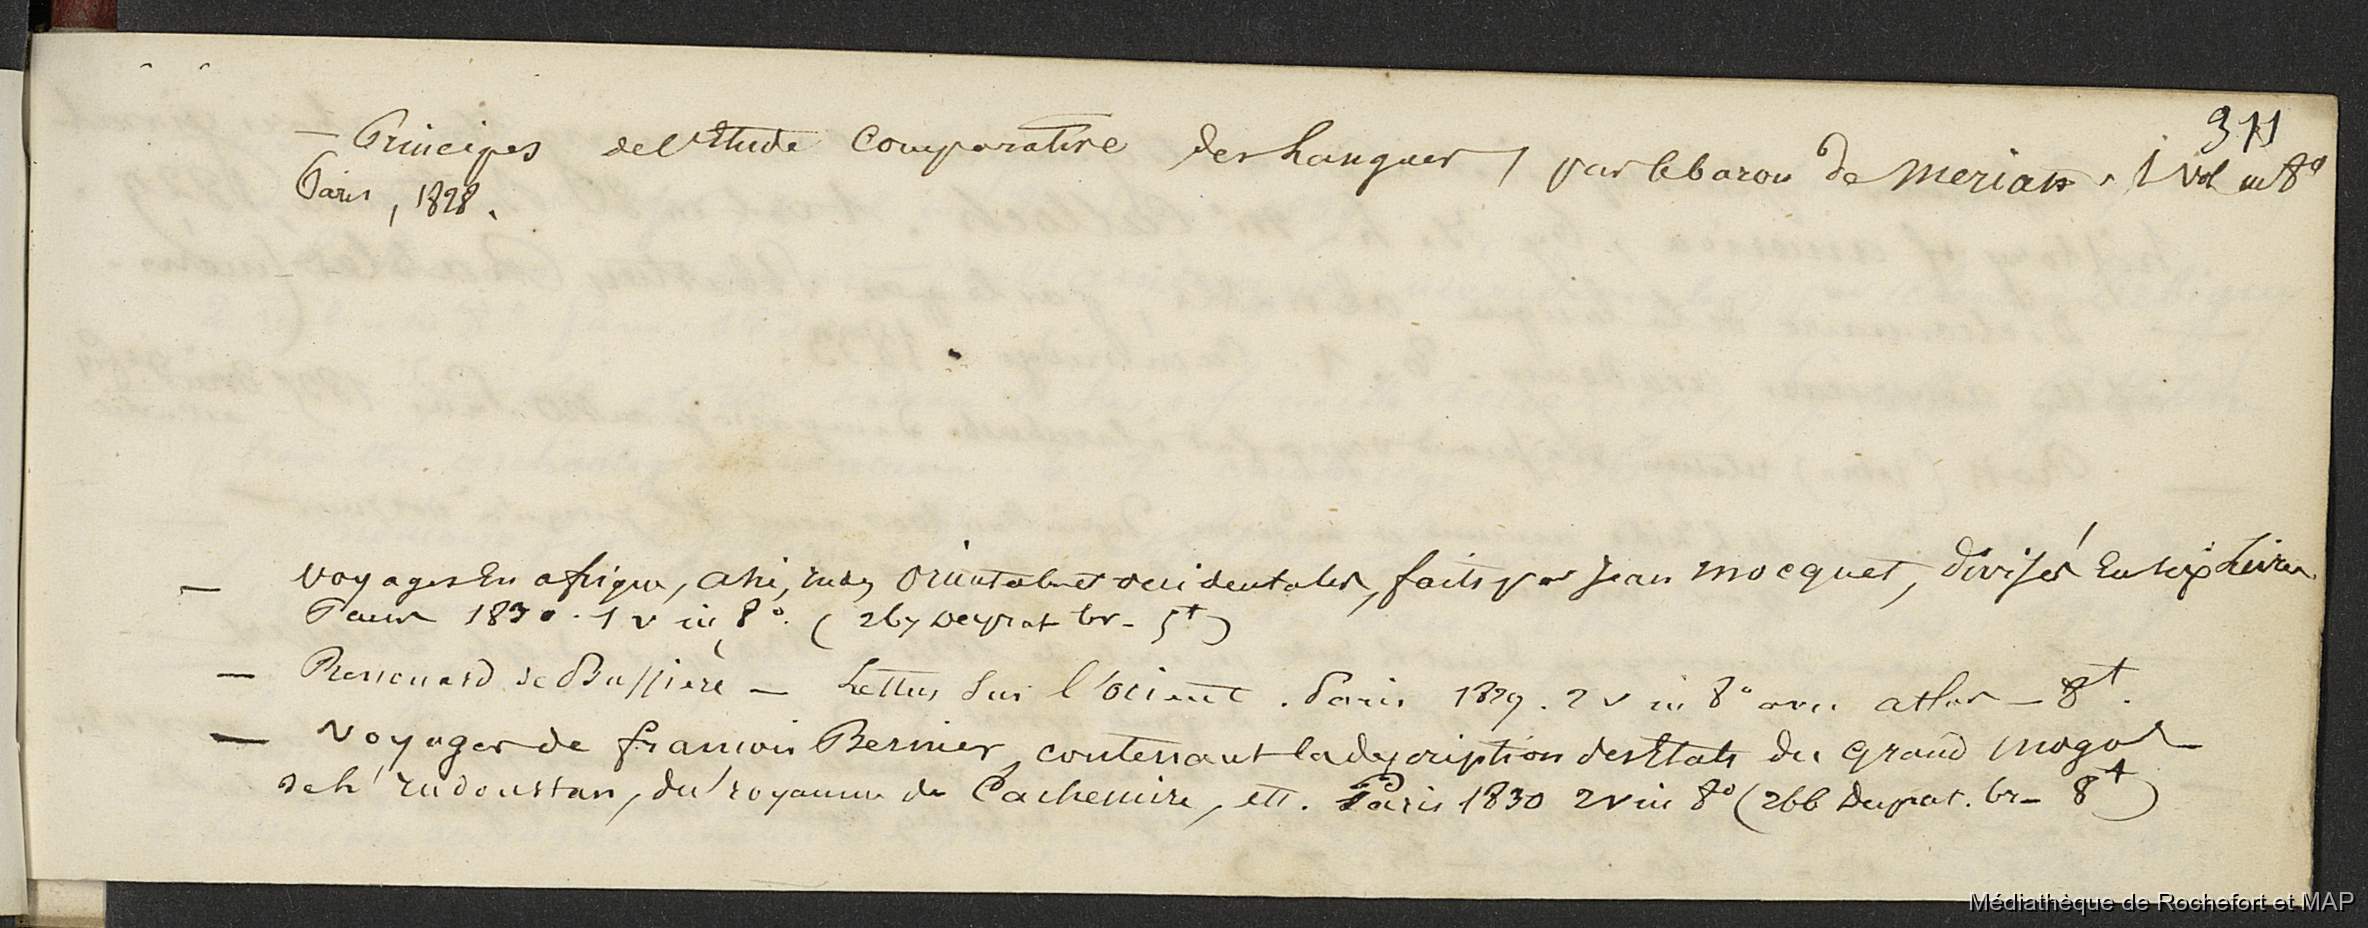 311
— Principes de l'Etude Comparative des Langues, par le baron de Merian. 1 vol in 8°
Paris, 1828.
— Voyages En afrique, asie, indes Orientales et occidentales, faits par Jean Mocquet, divisés En six Livres
Paris 1830. 1 v in 8°. (267 Deprat br- 5f)
— Renouard de Bussière — Lettres sur l'orient. Paris 1829. 2 v in 8° avec atlas — 8f.
— Voyages de francois Bernier, contenant la description des Etats du Grand mogol
de l'indoustan, du royaume de Cachemire, etc. Paris 1830 2 v in 8° (266 Deprat. br- 8f)
Médiathèque de Rochefort et MAP